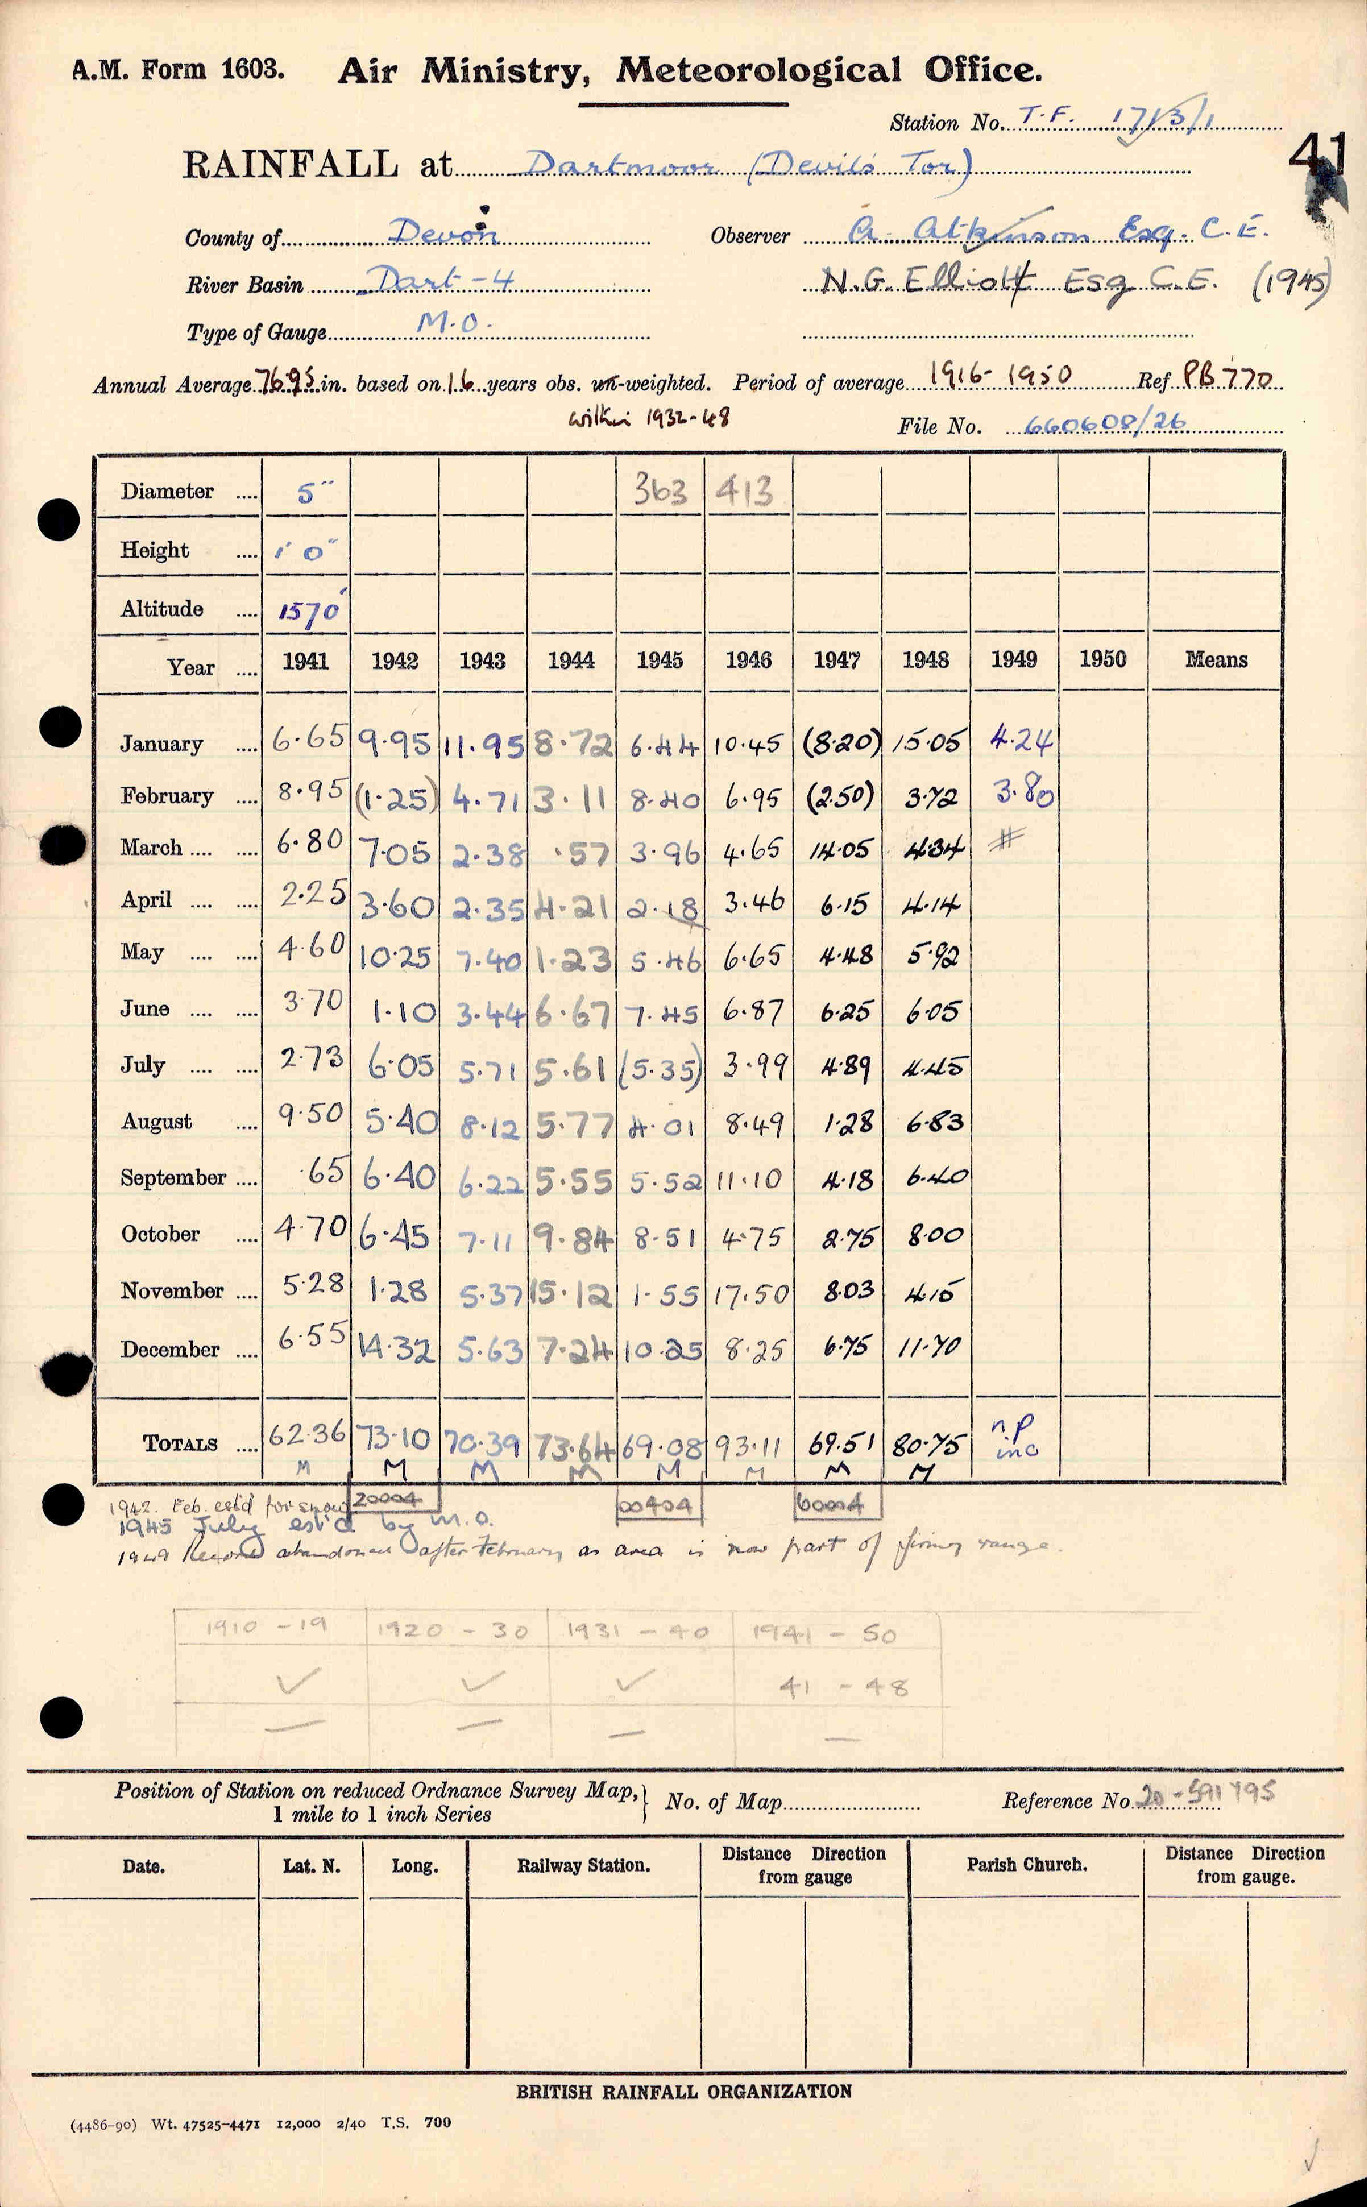 A.M. Form 1603. Air Ministry, Meteorological Office.
Station No. T.F. 1713/1
41
RAINFALL at Dartmoor (Devil's Tor)
County of Devon Observer A. Atkinson Esq. C.E.
River Basin Dart-4 N.G. Elliott Esq C.E. (1945)
Type of Gauge M.O.
Annual Average 76.95 in. based on 16 years obs. un-weighted. Period of average 1916-1950 Ref PB 770
within 1932-48 File No. 660608/26
Diameter .... 5" 363 413
Height .... 1' 0"
Altitude .... 1570'
Year .... 1941 1942 1943 1944 1945 1946 1947 1948 1949 1950 Means
January .... 6.65 9.95 11.95 8.72 6.44 10.45 (8.20) 15.05 4.24
February .... 8.95 (1.25) 4.71 3.11 8.40 6.95 (2.50) 3.72 3.80
March .... .... 6.80 7.05 2.38 .57 3.96 4.65 14.05 4.34 #
April .... .... 2.25 3.60 2.35 4.21 2.18 3.46 6.15 4.14
May .... .... 4.60 10.25 7.40 1.23 5.46 6.65 4.48 5.92
June .... .... 3.70 1.10 3.44 6.67 7.45 6.87 6.25 6.05
July .... .... 2.73 6.05 5.71 5.61 (5.35) 3.99 4.89 4.45
August .... 9.50 5.40 8.12 5.77 4.01 8.49 1.28 6.83
September .... .65 6.40 6.22 5.55 5.52 11.10 4.18 6.40
October .... 4.70 6.45 7.11 9.84 8.51 4.75 2.75 8.00
November .... 5.28 1.28 5.37 15.12 1.55 17.50 8.03 4.15
December .... 6.55 14.32 5.63 7.24 10.25 8.25 6.75 11.70
TOTALS .... 62.36 73.10 70.39 73.64 69.08 93.11 69.51 80.75 n.p inc
M M M M M M M M
1942. Feb. est'd for snow 20004 00404 60004
1945 July est'd by M.O.
1949 Record abandoned after February as area is now part of firing range.
1910 - 19 1920 - 30 1931 - 40 1941 - 50
✓ ✓ ✓ 41 - 48
— — — —
Position of Station on reduced Ordnance Survey Map, No. of Map Reference No. 20-591795
1 mile to 1 inch Series
Date. Lat. N. Long. Railway Station. Distance from gauge Direction Parish Church. Distance Direction from gauge.
BRITISH RAINFALL ORGANIZATION
(4486-90) Wt. 47525-4471 12,000 2/40 T.S. 700